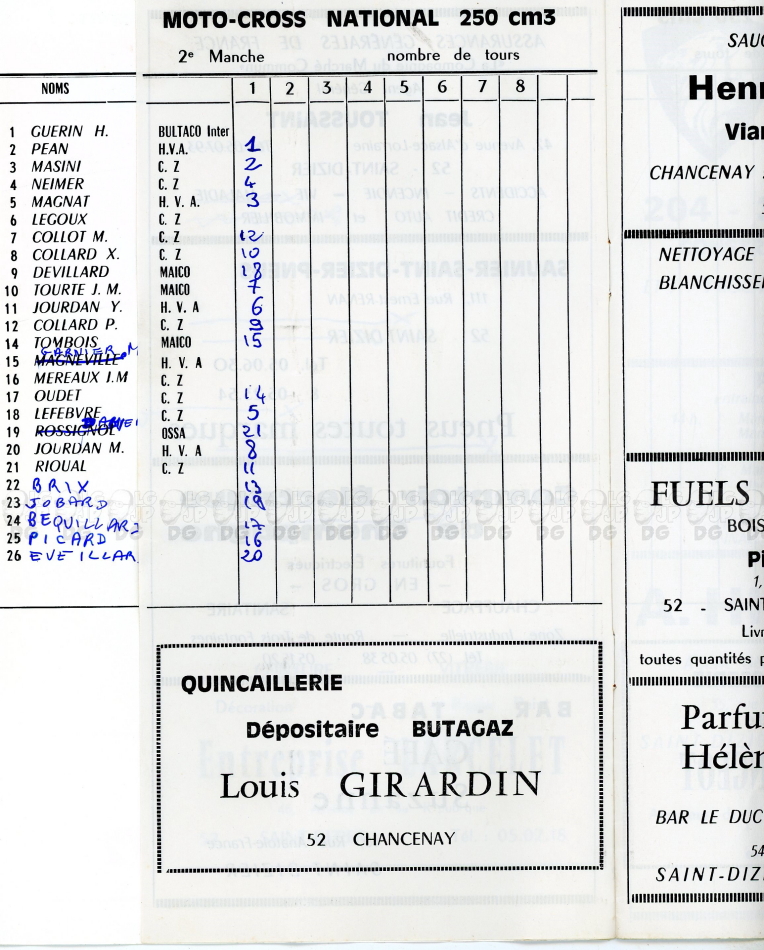 MOTO-CROSS NATIONAL 250 cm3
2e Manche nombre de tours
NOMS 1 2 3 4 5 6 7 8
1 GUERIN H. BULTACO Inter
2 PEAN H.V.A. 1
3 MASINI C. Z 2
4 NEIMER C. Z 4
5 MAGNAT H. V. A. 3
6 LEGOUX C. Z
7 COLLOT M. C. Z 12
8 COLLARD X. C. Z 10
9 DEVILLARD MAICO
10 TOURTE J. M. MAICO 7
11 JOURDAN Y. H. V. A 6
12 COLLARD P. C. Z 9
14 TOMBOIS MAICO 15
15 MAGNEVILLE H. V. A
16 MEREAUX J.M C. Z
17 OUDET C. Z 14
18 LEFEBVRE C. Z 5
19 ROSSIGNOL OSSA 21
20 JOURDAN M. H. V. A 8
21 RIOUAL C. Z 11
22 BRIX
23 JOBARD
24 BEQUILLARD 17
25 PICARD 16
26 EVEILLAR 20
QUINCAILLERIE
Dépositaire BUTAGAZ
Louis GIRARDIN
52 CHANCENAY
SAUC
Henr
Vian
CHANCENAY
NETTOYAGE
BLANCHISSE
FUELS
BOIS
Pi
1,
52 - SAINT
Livr
toutes quantités p
Parfu
Hélèn
BAR LE DUC
54
SAINT-DIZI